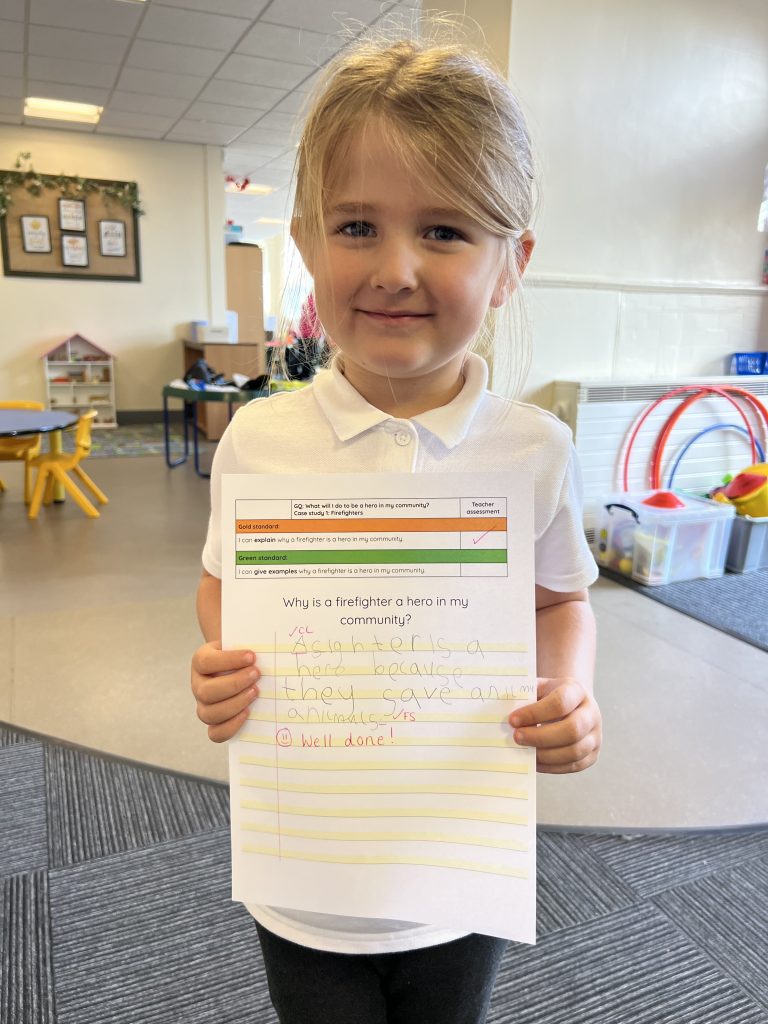 GQ: What will I do to be a hero in my community?
Case study 1: Firefighters
Teacher assessment
Gold standard:
I can explain why a firefighter is a hero in my community.
Green standard:
I can give examples why a firefighter is a hero in my community.
Why is a firefighter a hero in my
community?
✓CL
A sighter is a
hero because
they save
animals ✓FS
Well done!